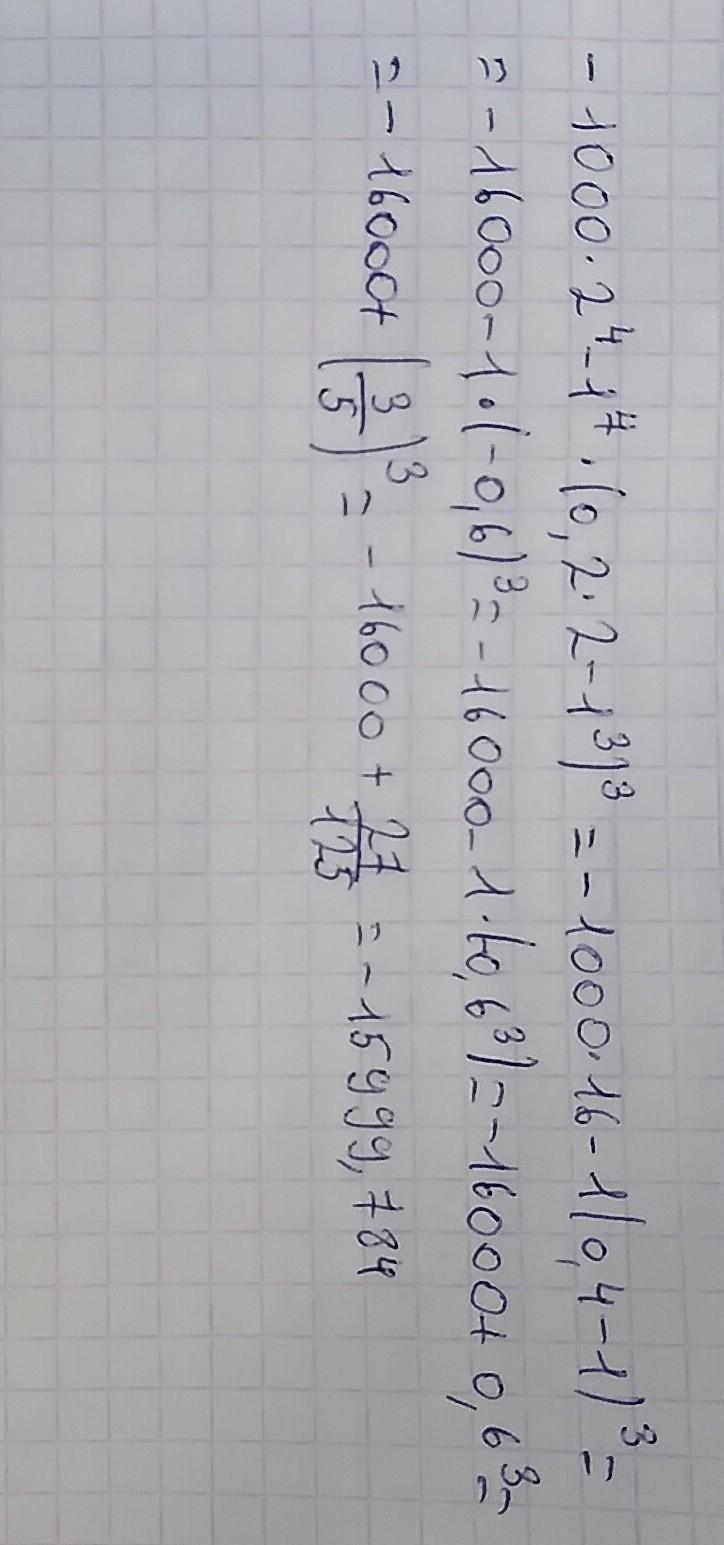 - 1000 · 2⁴ - 1⁷ · (0,2 · 2 - 1³)³ = - 1000 · 16 - 1(0,4 - 1)³ =
= - 16000 - 1 · (-0,6)³ = - 16000 - 1 · (0,6³) = - 16000 + 0,6³ =
= - 16000 + (3/5)³ = - 16000 + 27/125 = - 15999,784